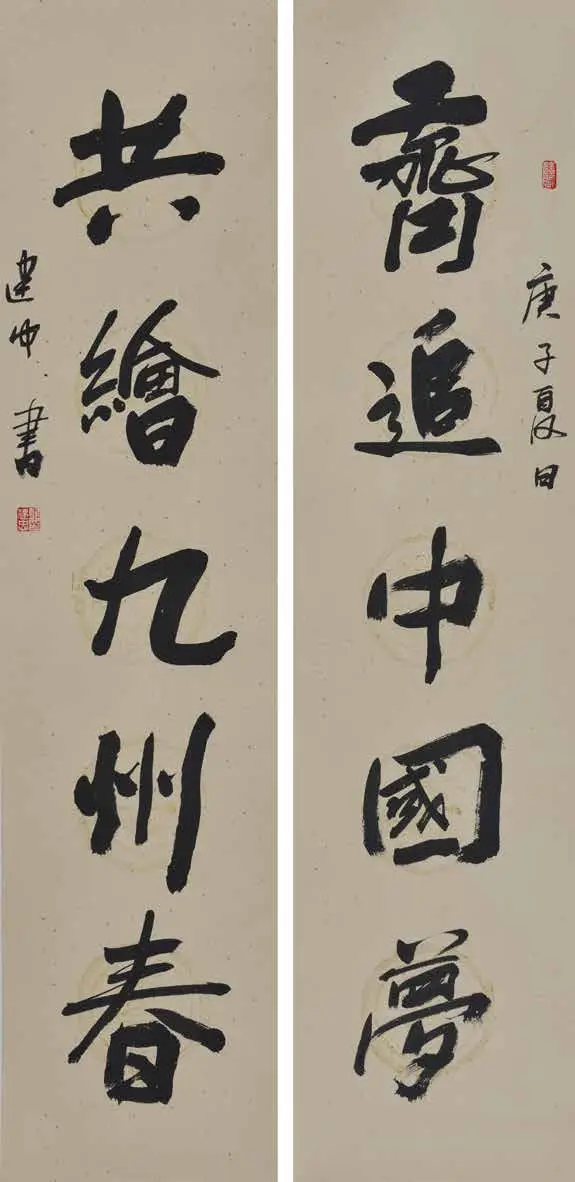 庚子夏日
齊追中國夢
共繪九州春
建中 書